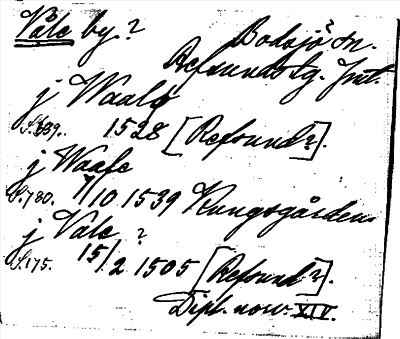 Våle by. ? Bodsjö? sn.
Refsunds tg. Jmt.
j Waaly
S. 689. 1528 [Refsund?].
j Waale
S. 780. 7/10 1539 Kungsgården
j Vale ?
S. 175. 15/2 1505 [Refsund?].
Dipl. norv. XIV.